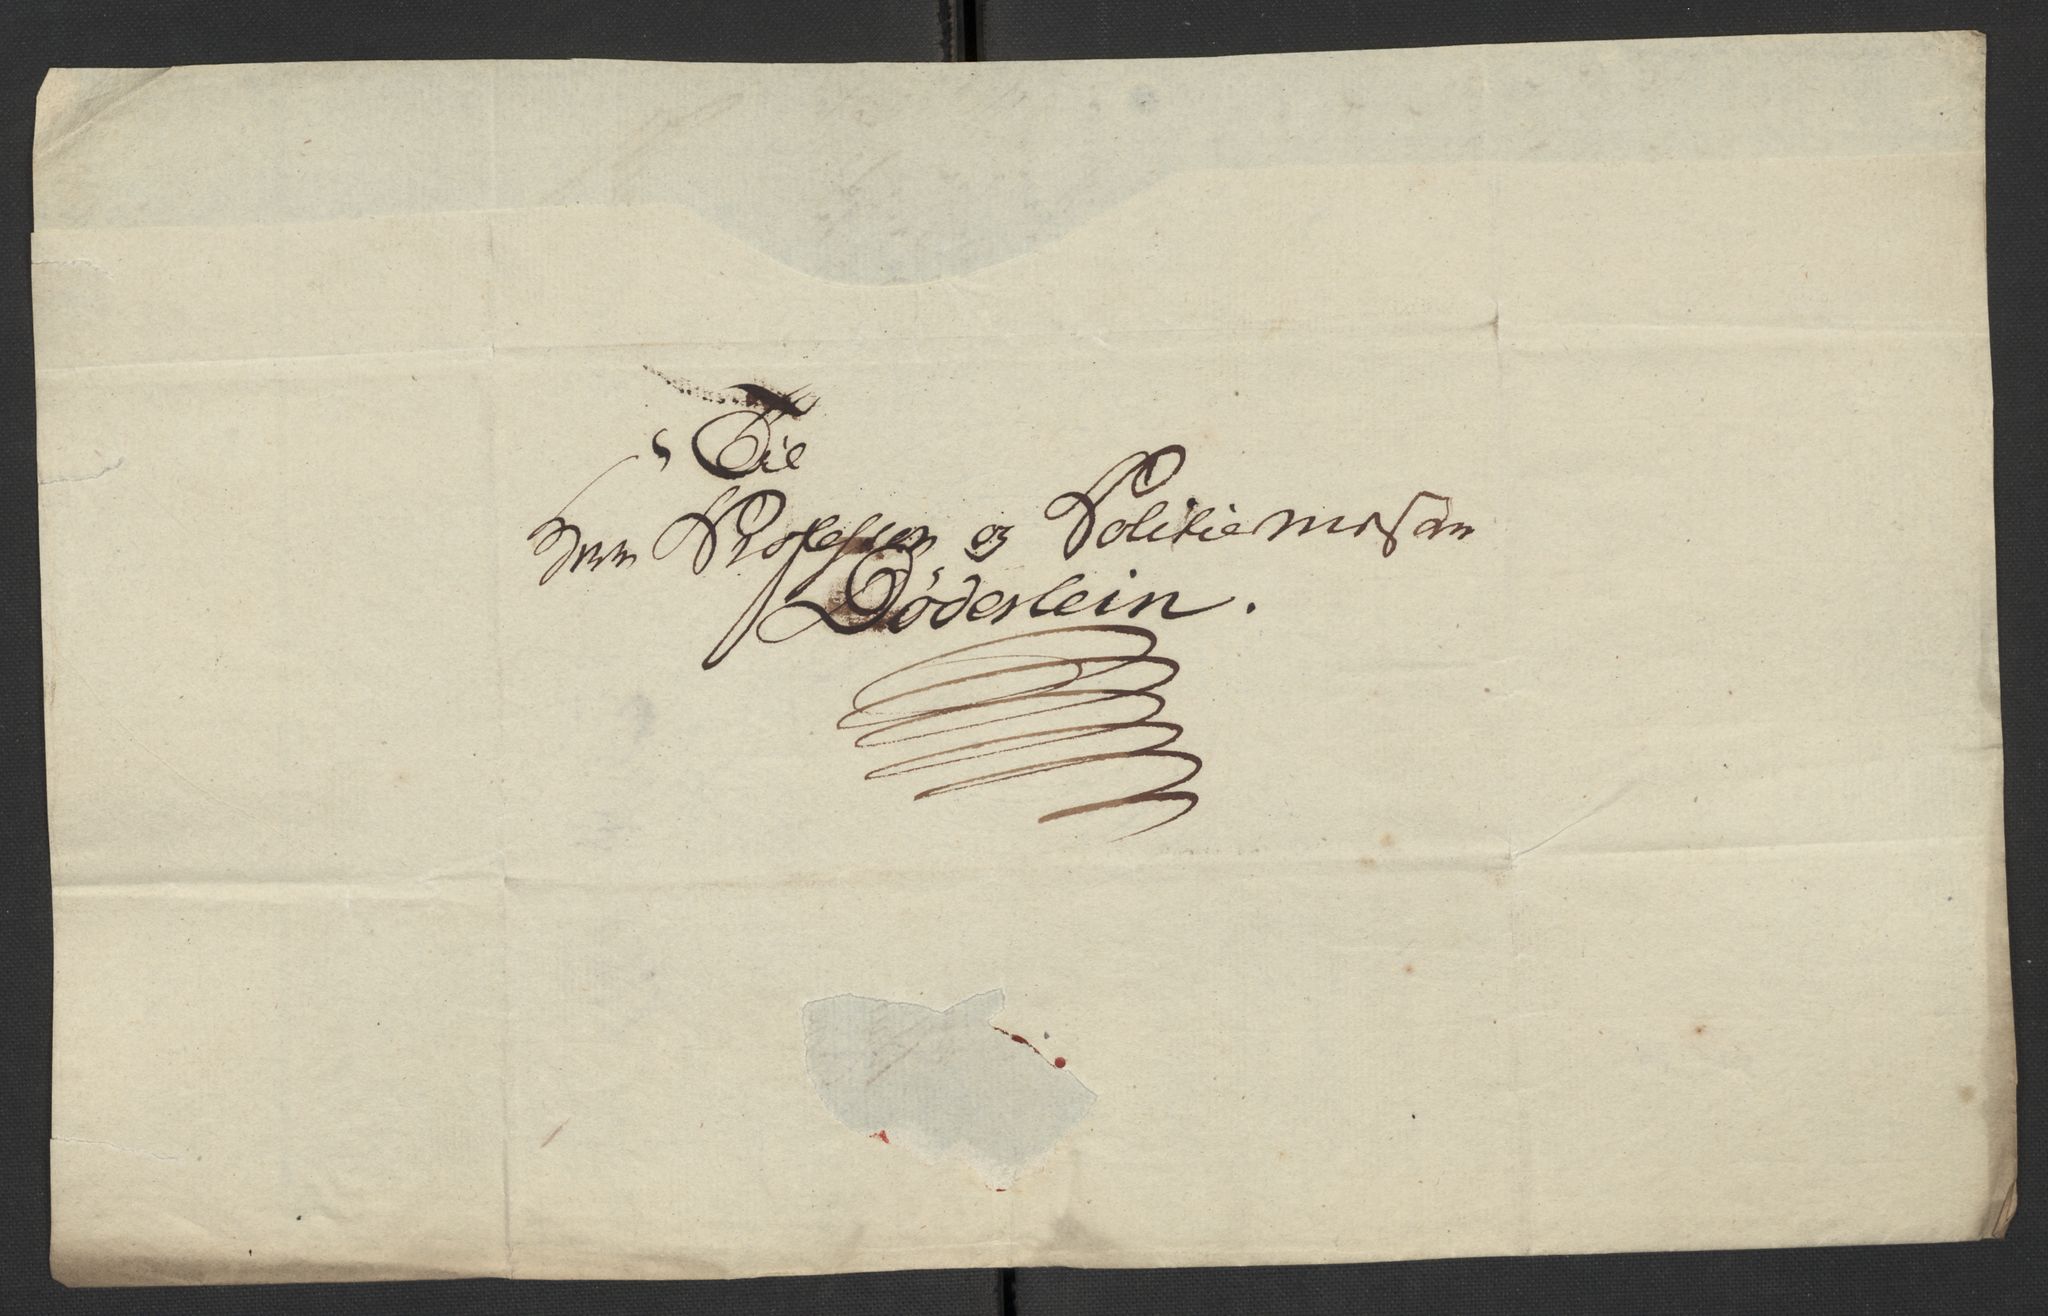 Til
Herr Professor og Politiemester
Döderlein.